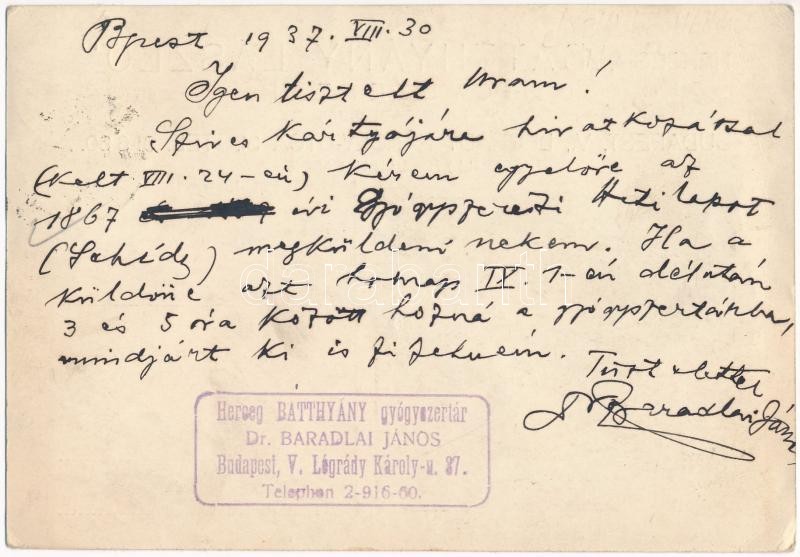 Bpest 1937. VIII. 30
Igen tisztelt Uram!
Szives kártyájára hivatkozással
(kelt VIII. 24-én) kérem egyelőre az
1867 évi Gyógyszerészi Hetilapot
(Schédy) megküldeni nekem. Ha a
küldönc azt holnap IX. 1-én délután
3 és 5 óra között hozná a gyógyszertárba,
mindjárt ki is fizetném.
Tisztelettel
Dr Baradlai János
Herceg BATTHYÁNY gyógyszertár
Dr. BARADLAI JÁNOS
Budapest, V. Légrády Károly-u. 37.
Telephon 2-916-60.
darabanth